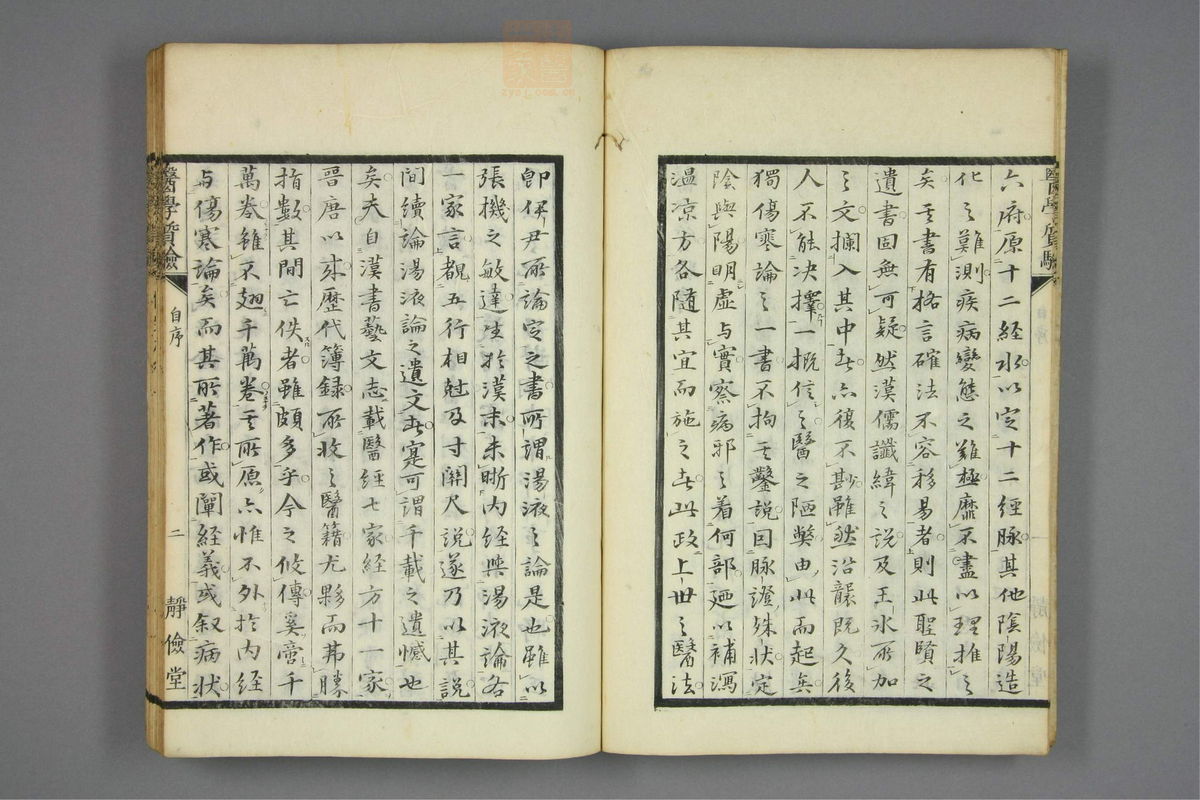 醫學質驗
自序
一
靜儉堂
六府原十二經水以定十二經脉其他陰陽造
化之難測疾病變態之難極靡不盡以理推之
矣其書有格言確法不容移易者則此聖賢之
遺書固無可疑然漢儒讖緯之說及王冰所加
之文攔入其中者亦復不尠雖然沿襲既久後
人不能决擇一概信之醫之陋獘由此而起矣
獨傷寒論之一書不拘其鑿說因脉證殊狀定
陰與陽明虛与實察病邪之着何部廼以補瀉
温凉方各隨其宜而施之者此政上世之醫法
即伊尹所論定之書所謂湯液之論是也雖以
張機之敏達生於漢末未晣內經與湯液論各
一家言覩五行相尅及寸關尺說遂乃以其說
間續論湯液論之遺文者寔可謂千載之遺憾也
矣夫自漢書藝文志載醫經七家經方十一家
晉唐以來歷代簿錄所收之醫籍尤夥而弗勝
指數其間亡佚者雖頗多乎今之攸傳奚啻千
萬卷雖不翅千萬卷其所原亦惟不外於内經
与傷寒論矣而其所著作或闡經義或叙病狀
醫學質驗
自序
二
靜儉堂
zysj.com.cn